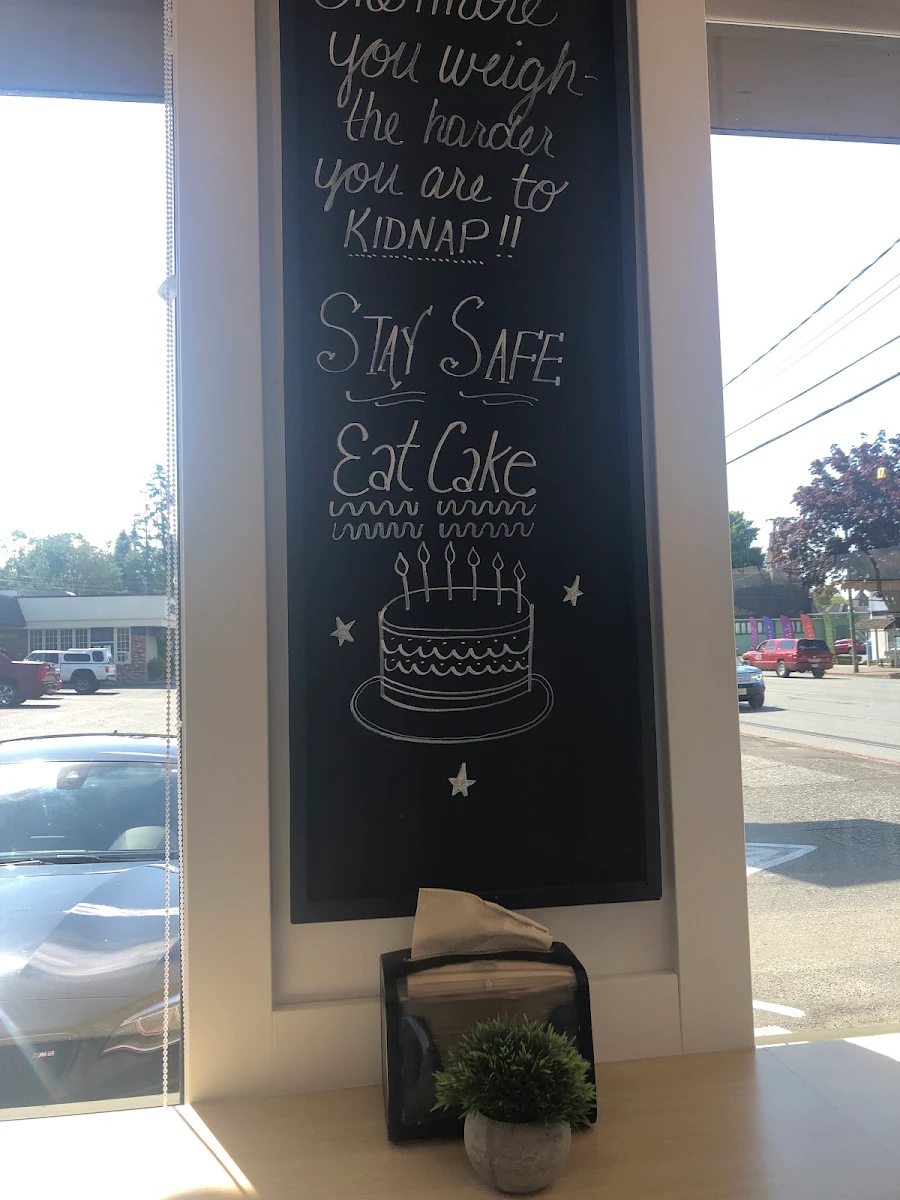 The more
you weigh-
the harder
you are to
KIDNAP!!
STAY SAFE
Eat Cake